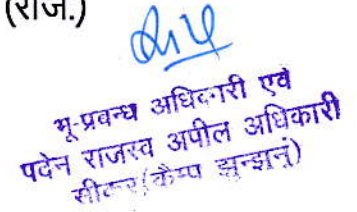 (राज.)
भू-प्रबन्ध अधिकारी एवं
पदेन राजस्व अपील अधिकारी
सीकर (कैम्प झुन्झुनूं)